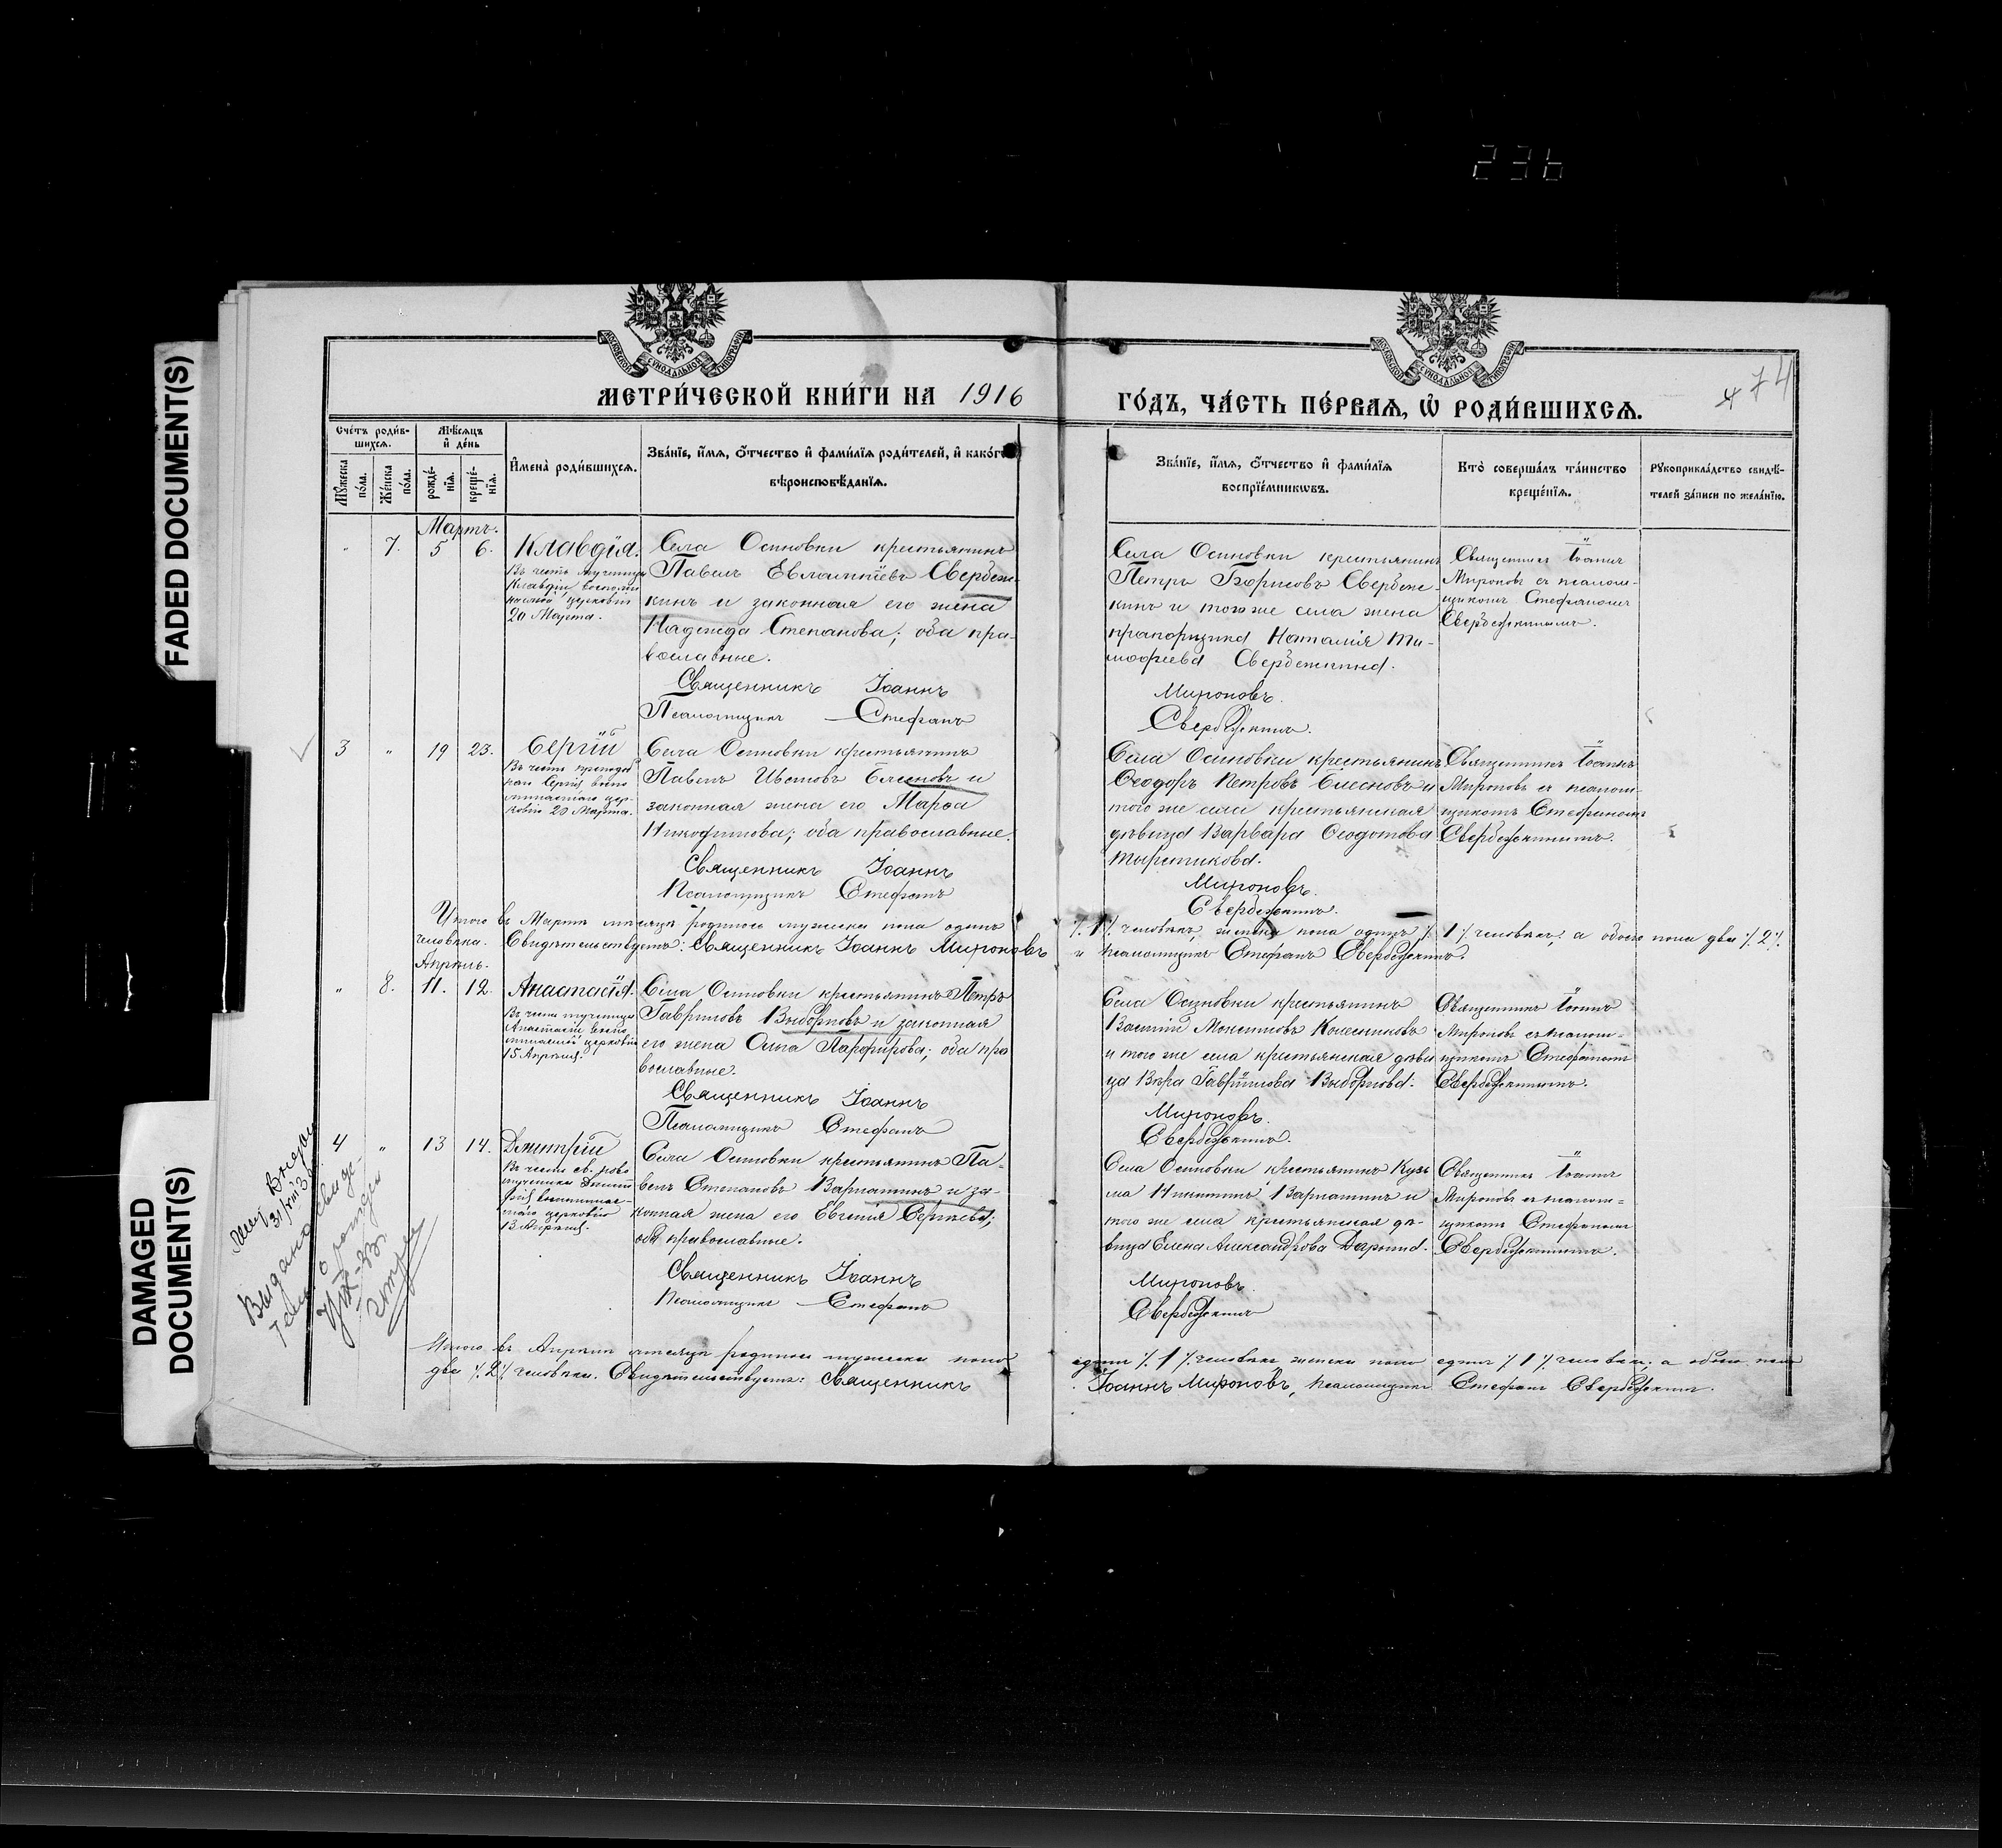 236
FADED DOCUMENT(S)
DAMAGED
DOCUMENT(S)
МОСКОВСКОЙ СѴНОДАЛЬНОЙ ТИПОГРАФІИ
МОСКОВСКОЙ СѴНОДАЛЬНОЙ ТИПОГРАФІИ
МЕТРИ́ЧЕСКОЙ КНИ́ГИ НА 1916
ГО́ДЪ, ЧА́СТЬ ПЕ́РВАѦ, Ѡ҆ РОДИ́ВШИХСѦ.
74
Сче́тъ роди́в-
шихсѧ.
Мꙋ́жеска
по́ла.
Же́нска
по́ла.
Мѣ́сѧцъ
и҆ де́нь
рожде́-
нїѧ.
креще́-
нїѧ.
И҆мена̀ роди́вшихсѧ.
Зва́нїе, и҆́мѧ, ѻ҆́тчество и҆ фами́лїѧ роди́телей, и҆ како́гѡ
вѣроисповѣ́данїѧ.
Зва́нїе, и҆́мѧ, ѻ҆́тчество и҆ фами́лїѧ
воспрїе́мникѡвъ.
Кто̀ соверша́лъ та́инство
креще́нїѧ.
Рꙋкоприкла́дство свидѣ́-
телей за́писи по жела́нїю.
Мартъ.
" 7. 5 6. Клавдія.
Въ честь мученицы
Клавдіи, воспоми
наемой церковію
20 Марта.
Села Осиновки крестьянинъ
Павелъ Евлампіевъ Свербеж-
кинъ и законная его жена
Надежда Степанова; оба пра-
вославные.
Священникъ Іоаннъ
Псаломщикъ Стефанъ
Села Осиновки крестьянинъ
Петръ Борисовъ Свербеж-
кинъ и того же села жена
прапорщика Наталія Ти-
мофеева Свербежкина.
Мироновъ.
Свербежкинъ.
Священникъ Іоаннъ
Мироновъ съ псалом-
щикомъ Стефаномъ
Свербежкинымъ.
3 " 19 23. Сергій
Въ честь преподоб
наго Сергія, воспо
минаемаго цер-
ковію 20 Марта.
Села Осиновки крестьянинъ
Павелъ Ивановъ Блесновъ и
законная жена его Марѳа
Никофимова; оба православные.
Священникъ Іоаннъ
Псаломщикъ Стефанъ
Села Осиновки крестьянинъ
Ѳеодоръ Петровъ Блесновъ и
того же села крестьянская
дѣвица Варвара Ѳеодотова
Мироновъ.
Свербежкинъ.
Священникъ Іоаннъ
Мироновъ съ псалом-
щикомъ Стефаномъ
Свербежкинымъ.
Итого въ Мартѣ мѣсяцѣ родилось мужеска пола одинъ
٪ 1 ٪ человѣкъ, женска пола одинъ ٪ 1 ٪ человѣкъ; а обоего пола два ٪ 2 ٪
человѣка. Свидѣтельствуетъ: Священникъ Іоаннъ Мироновъ
и псаломщикъ Стефанъ Свербежкинъ.
Апрѣль.
" 8. 11. 12. Анастасія.
Въ честь мученицы
Анастасіи, воспо
минаемой церковію
15 Апрѣля.
Села Осиновки крестьянинъ Петръ
Гавриловъ Выборновъ и законная
его жена Ольга Парфирова; оба пра
вославные.
Священникъ Іоаннъ
Псаломщикъ Стефанъ
Села Осиновки крестьянинъ
Василій Моисеиновъ Колесниковъ
и того же села крестьянская дѣви
ца Вѣра Гавріилова Выборнова.
Мироновъ.
Свербежкинъ.
Священникъ Іоаннъ
Мироновъ съ псалом-
щикомъ Стефаномъ
Свербежкинымъ.
4 " 13 14. Димитрій
Въ честь св.
мученика Димит
рія, воспоминае-
маго церковію
13 Апрѣля.
Села Осиновки крестьянинъ Па-
велъ Степановъ Варламинъ и за-
конная жена его Евгенія Сергіева;
оба православные.
Священникъ Іоаннъ
Псаломщикъ Стефанъ
Села Осиновки крестьянинъ Кузь
ма Никитинъ Варламинъ и
того же села крестьянская дѣ-
вица Елена Александрова Даронина.
Мироновъ.
Свербежкинъ
Священникъ Іоаннъ
Мироновъ съ псалом-
щикомъ Стефаномъ
Свербежкинымъ.
Выдано свидѣ-
о рожден
Итого въ Апрѣлѣ мѣсяцѣ родилось мужеска пола
одинъ ٪ 1 ٪ человѣкъ женска пола одинъ ٪ 1 ٪ человѣкъ; а обоего пола
два ٪ 2 ٪ человѣка. Свидѣтельствуетъ: Священникъ
Іоаннъ Мироновъ, псаломщикъ Стефанъ Свербежкинъ.